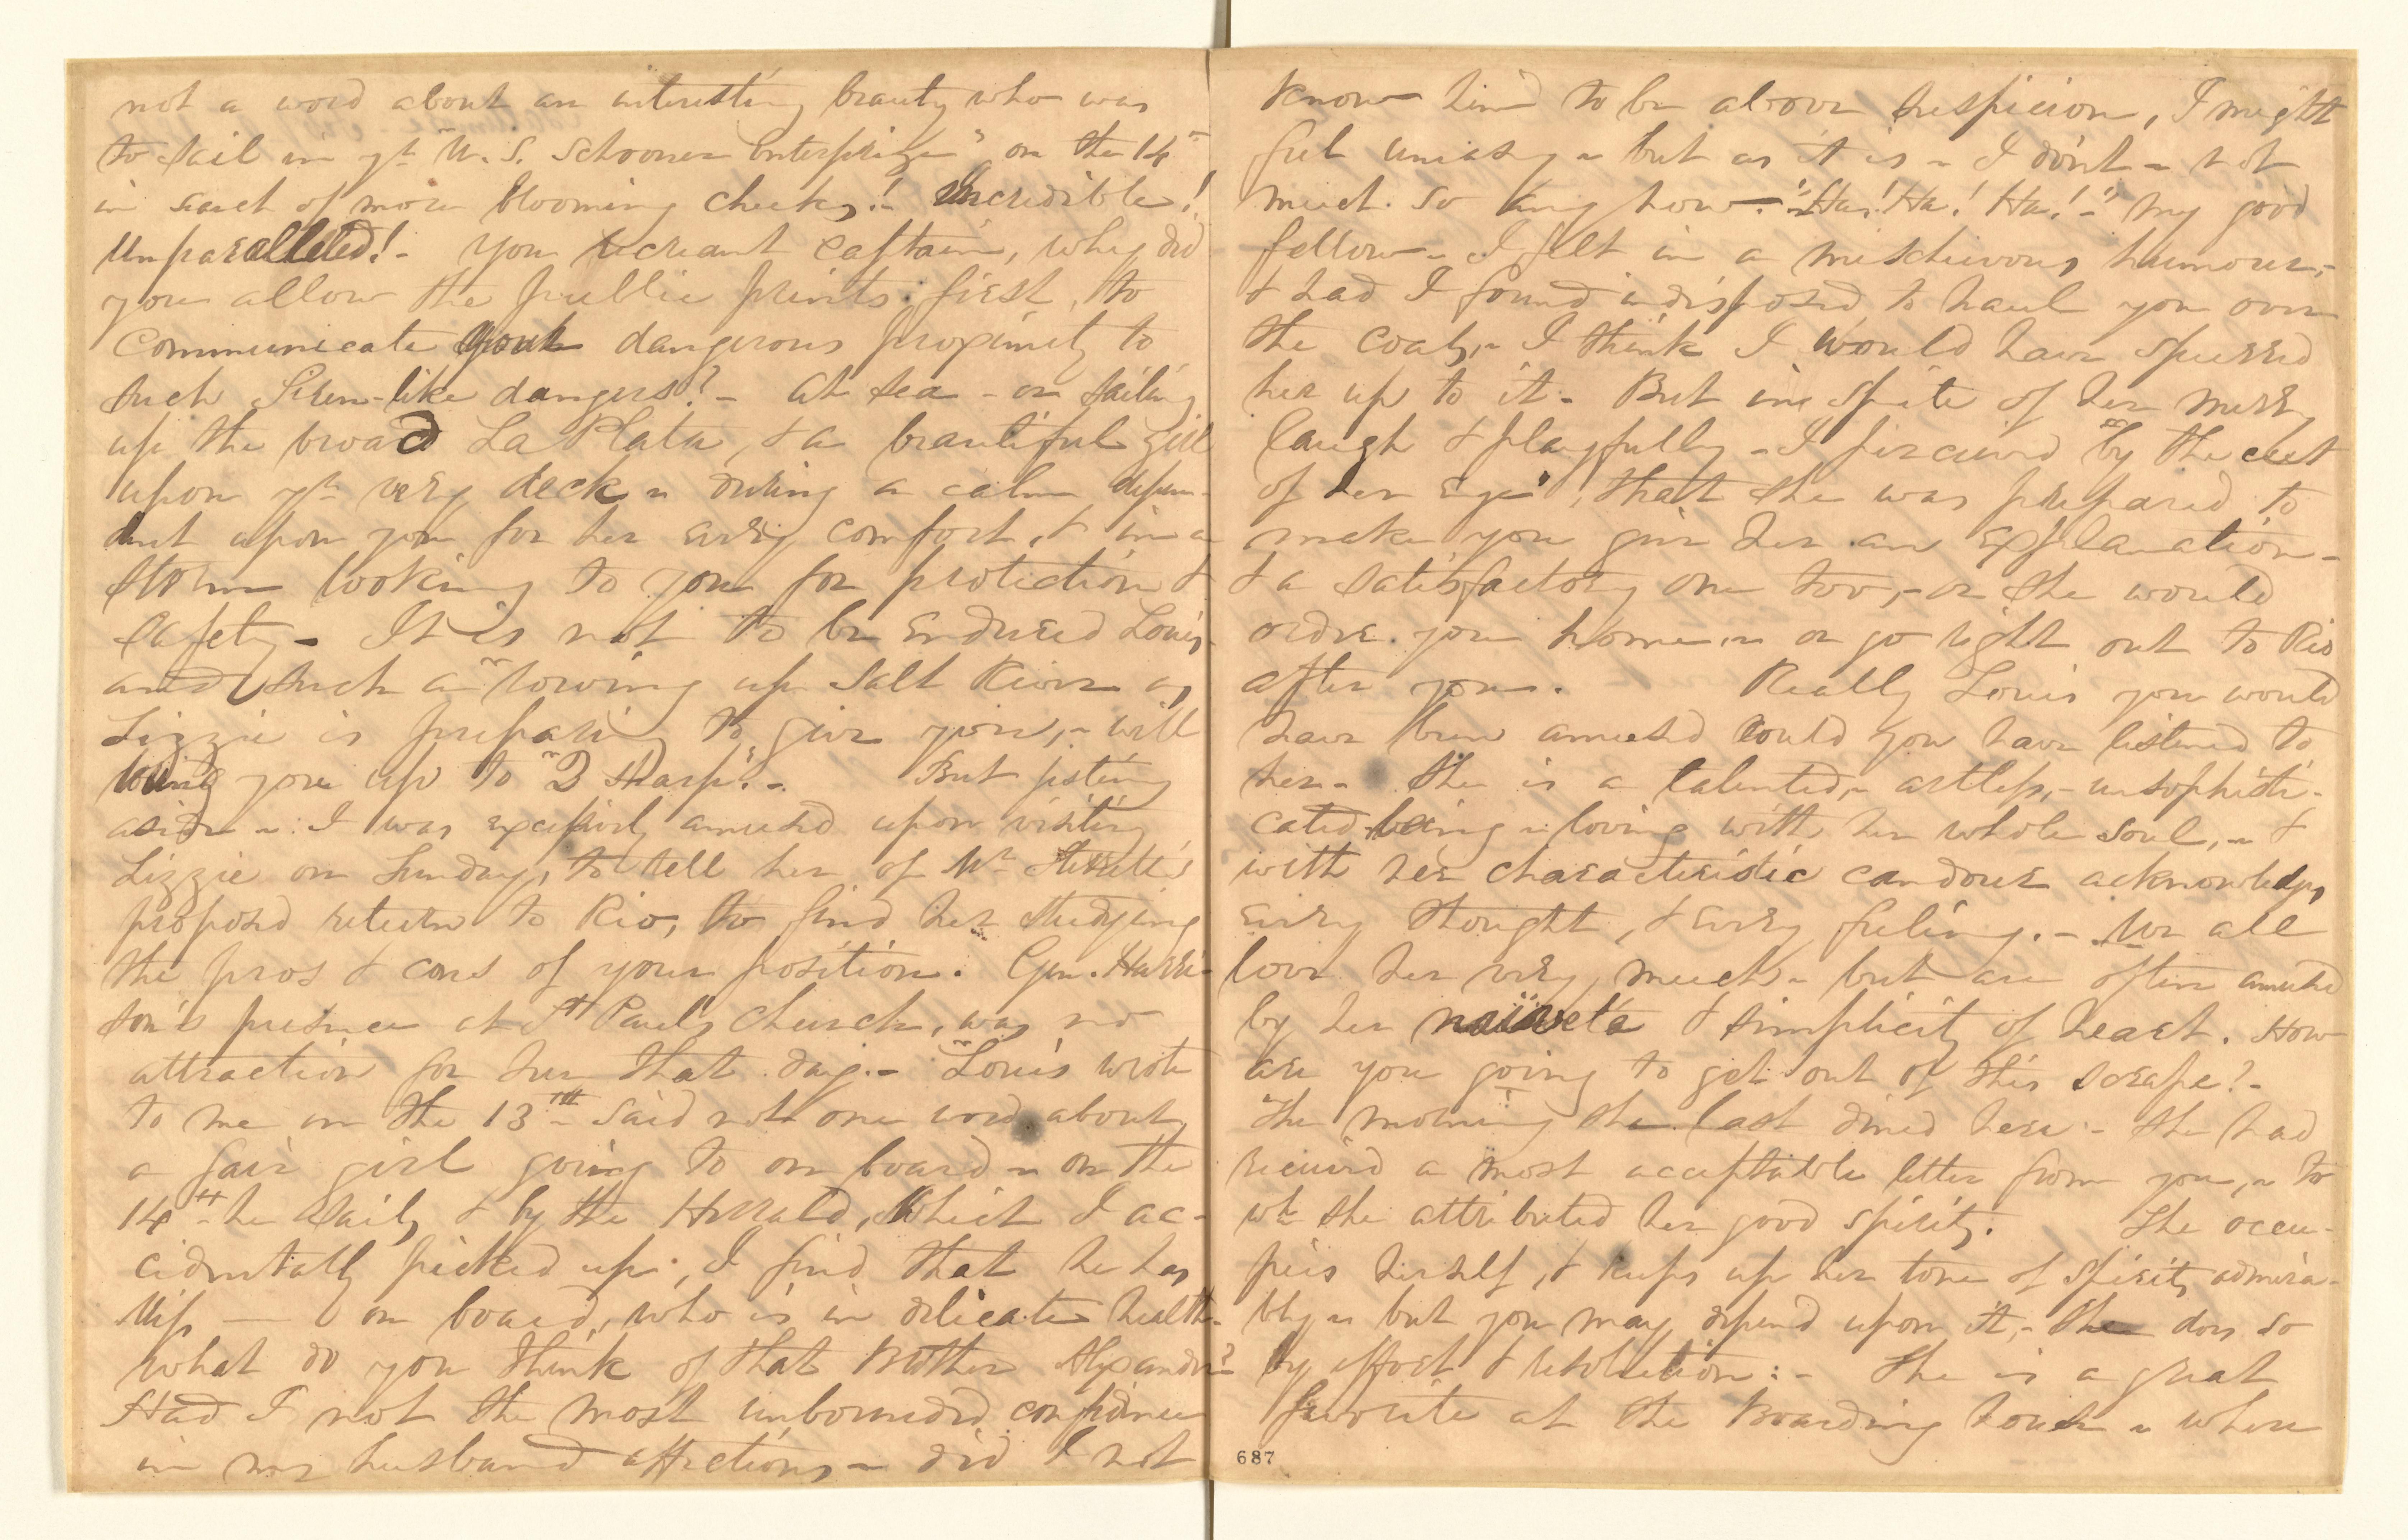 not a word about an interesting beauty who was
to sail in yr "U. S. Schooner Enterprize" on the 14th
in search of more blooming cheeks! - Incredible!
Unparalleled! - You recreant Captain, why did
you allow the public prints first, to
communicate your dangerous proximity to
such Siren-like dangers? - At sea - or sailing
up the broad La Plata, & a beautiful girl
upon yr very deck - during a calm depen-
dent upon you for her every comfort, & in a
storm looking to you for protection &
safety - It is not to be endured Louis
and such a "rowing up Salt River as
Lizzie is preparing to give you, - will
bring you up to "D sharp". - But jesting
aside - I was excessively amused upon visiting
Lizzie on Sunday, to tell her of Mr
proposed return to Rio, to find her studying
the pros & cons of your position. Gen. Harri-
son's presence at St Paul's Church, was no
attraction for her that day. - "Louis wrote
to me on the 13th - said not one word about
a fair girl going to on board - on the
14th - he sails, & by the Herald, which I ac-
cidentally picked up, I find that he has
Miss — on board, who is in delicate health -
what do you think of that Mother Alexander?
Had I not the most unbounded confidence
in my husband affections - did I not
know him to be above suspicion, I might
feel uneasy - but as it is - I don't - not
much so any how. - "Ha! Ha! Ha! -" My good
fellow - I felt in a mischievous humour, -
& had I found indisposed to haul you over
the coals, - I think I would have spurred
her up to it - But in spite of her merry
laugh & playfully - I perceived by the "cut
of her eye", that she was prepared to
make you give her an explanation -
& a satisfactory one too, - or she would
order you home, - or go right out to Rio
after you. Really Louis you would
have been amused could you have listened to
her - She is a talented, - artless, - unsophisti-
cated being - loving with her whole soul, - &
with her characteristic candour acknowledges
every thought, & every feeling. - We all
love her very much - but are often amused
by her naïvete & simplicity of heart. How
are you going to get out of this scrape? -
The morning she last dined here - she had
received a most acceptable letter from you, - to
wh she attributed her good spirits. She occu-
pies herself, & keeps up her tone of spirits admira-
bly - but you may depend upon it, - she does so
by effort & resolution: - She is a great
favorite at the Boarding house - where
687